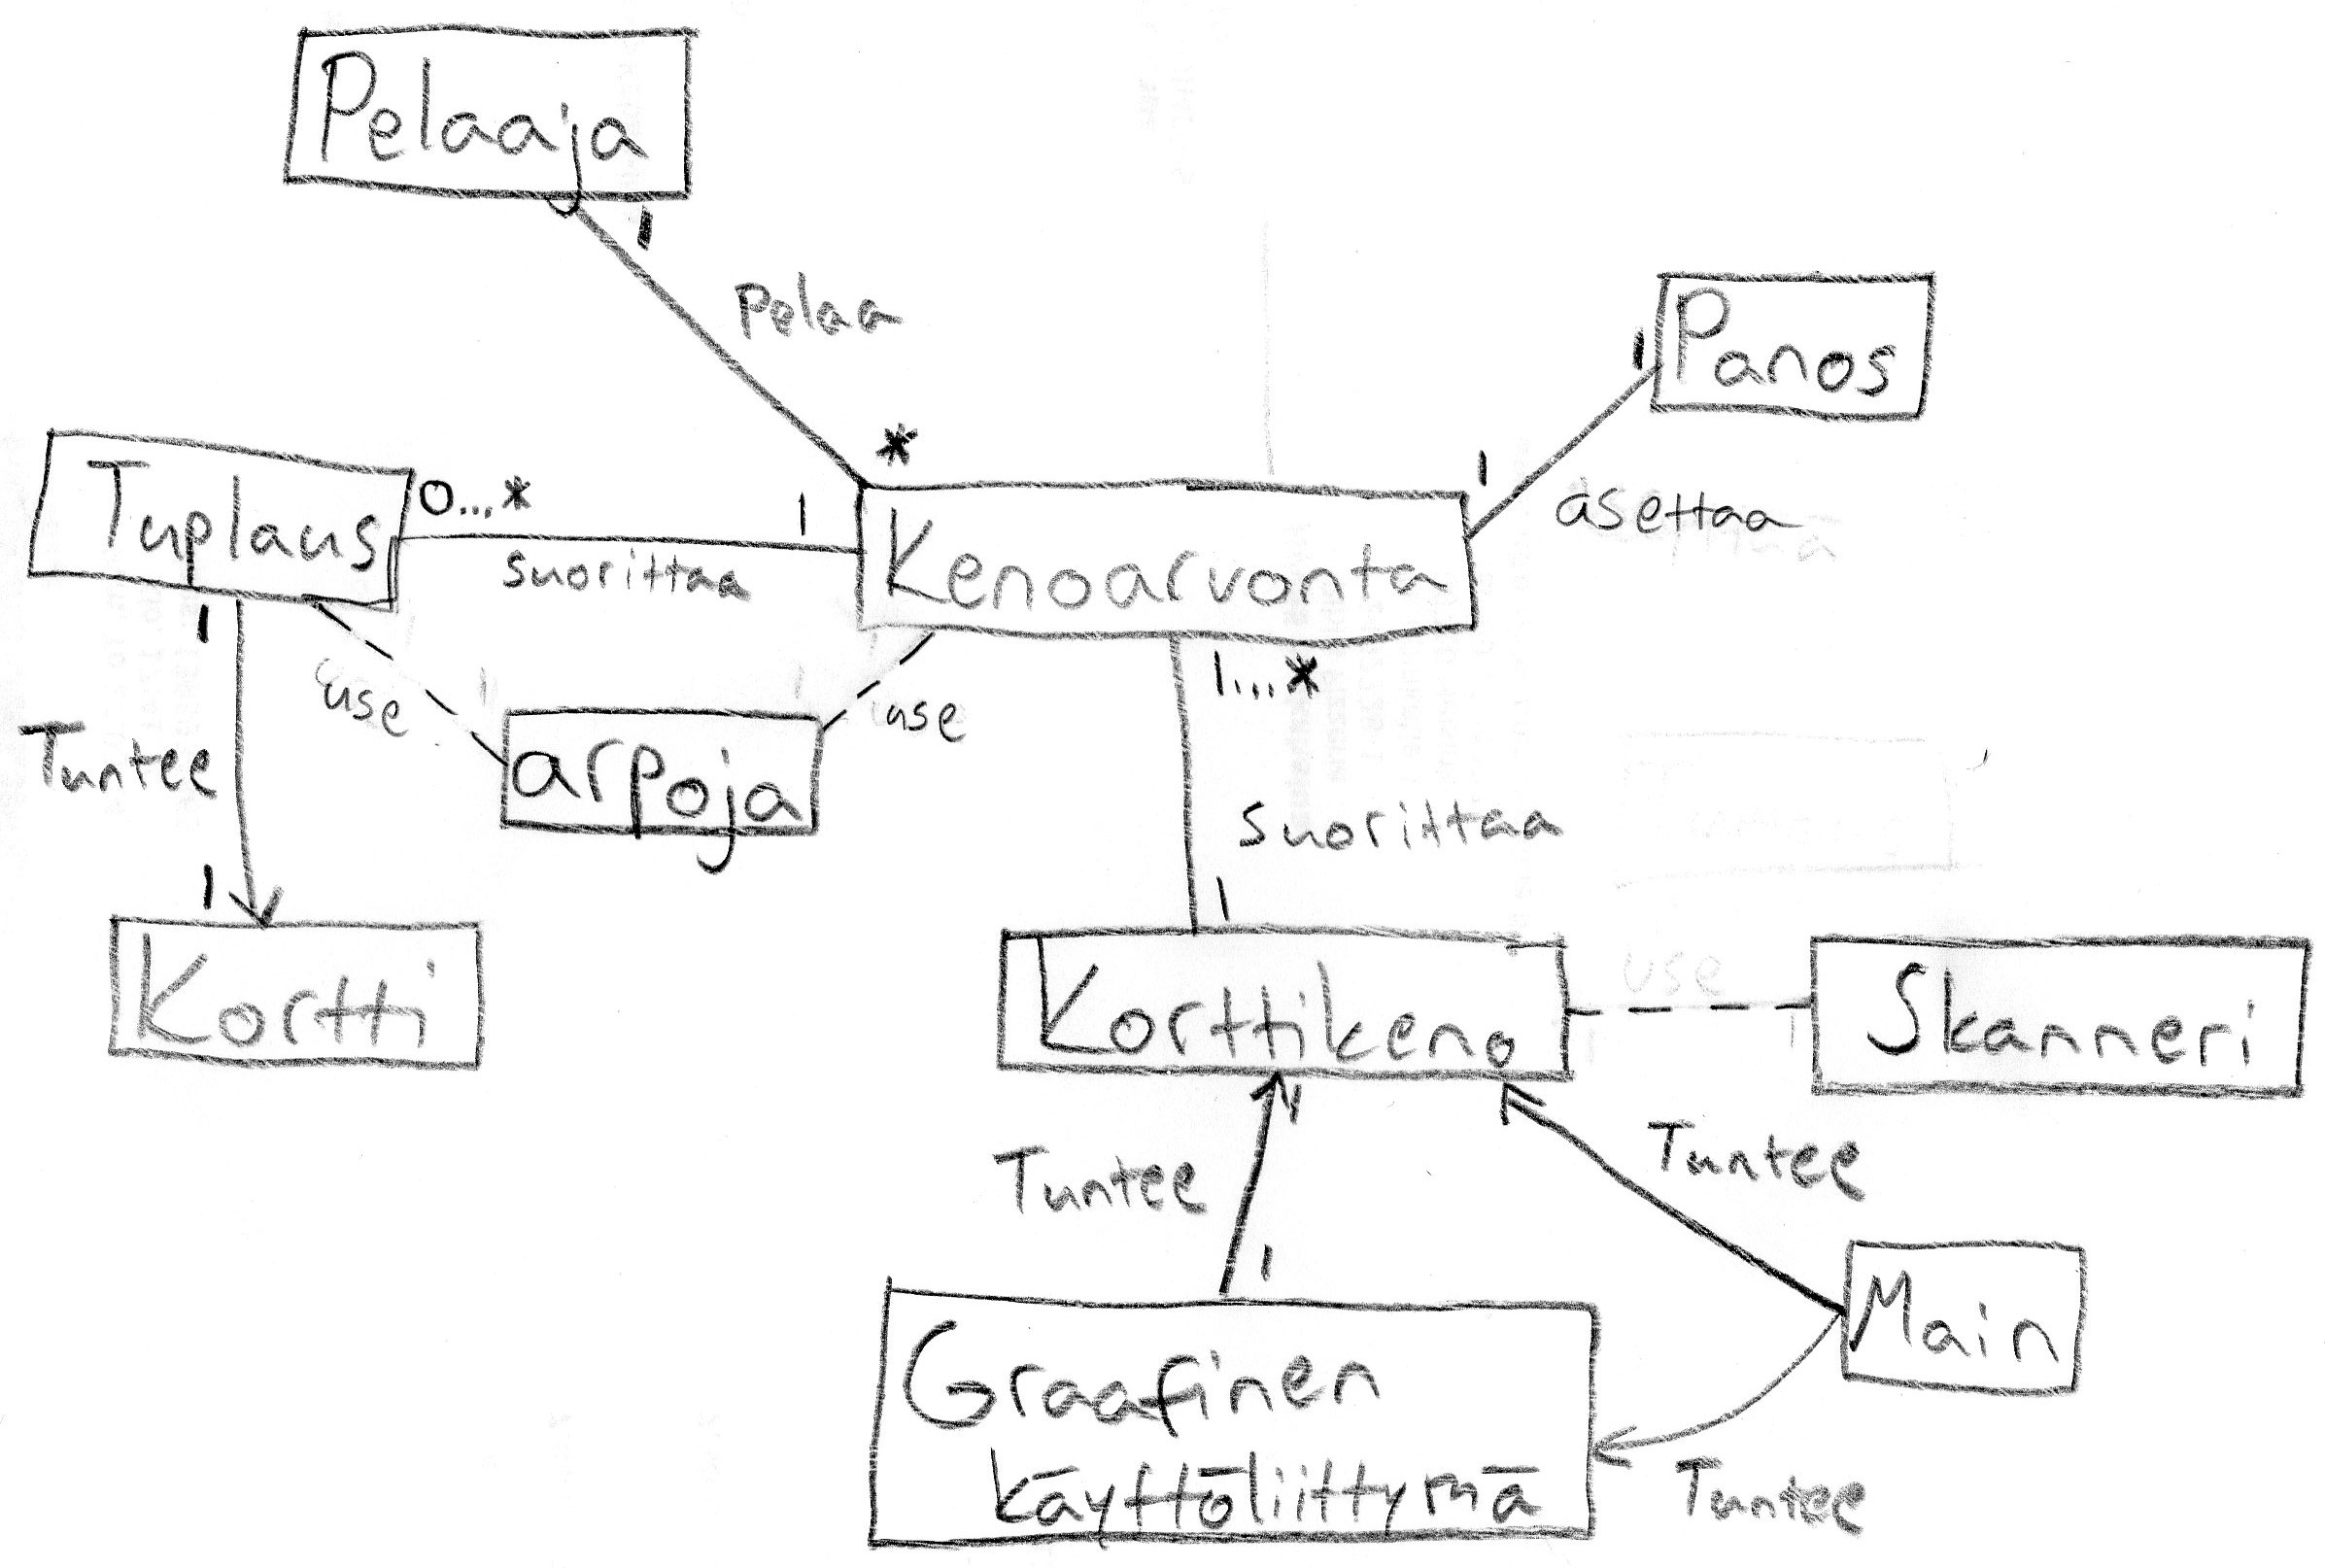 Pelaaja
1
Pelaa
*
Panos
1
1
asettaa
Tuplaus
0...*
1
suorittaa
Kenoarvonta
1
use
use
1...*
Tuntee
arpoja
suorittaa
1
1
Kortti
Korttikeno
use
Skanneri
Tuntee
Tuntee
1
Main
Graafinen
käyttöliittymä
Tuntee